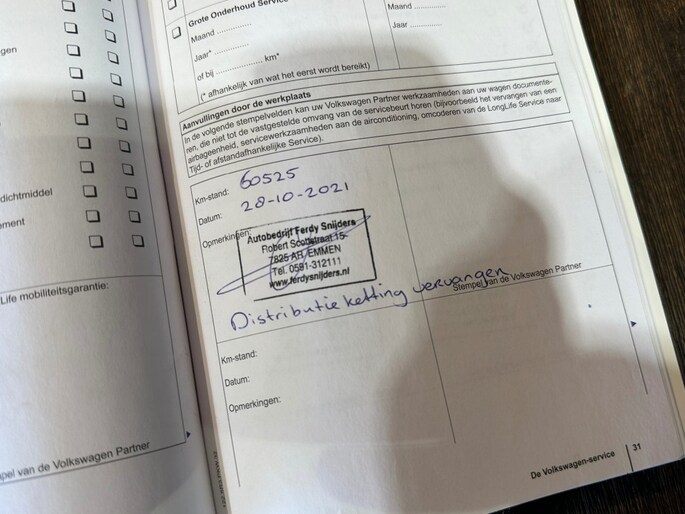 gen
dichtmiddel
ement
Life mobiliteitsgarantie:
pel van de Volkswagen Partner
Grote Onderhoud Service
Maand ..............
Jaar* ..............
of bij .................. km*
(* afhankelijk van wat het eerst wordt bereikt)
Maand .............
Jaar ..............
Aanvullingen door de werkplaats
In de volgende stempelvelden kan uw Volkswagen Partner werkzaamheden aan uw wagen documente-
ren, die niet tot de vastgestelde omvang van de servicebeurt horen (bijvoorbeeld het vervangen van een
airbageenheid, servicewerkzaamheden aan de airconditioning, omcoderen van de LongLife Service naar
Tijd- of afstandafhankelijke Service).
Km-stand: 60525
Datum: 28-10-2021
Opmerkingen:
Autobedrijf Ferdy Snijders
Robert Scottstraat 15
7825 AR EMMEN
Tel. 0591-312111
www.ferdysnijders.nl
Distributie ketting vervangen
Stempel van de Volkswagen Partner
Km-stand:
Datum:
Opmerkingen:
De Volkswagen-service
31